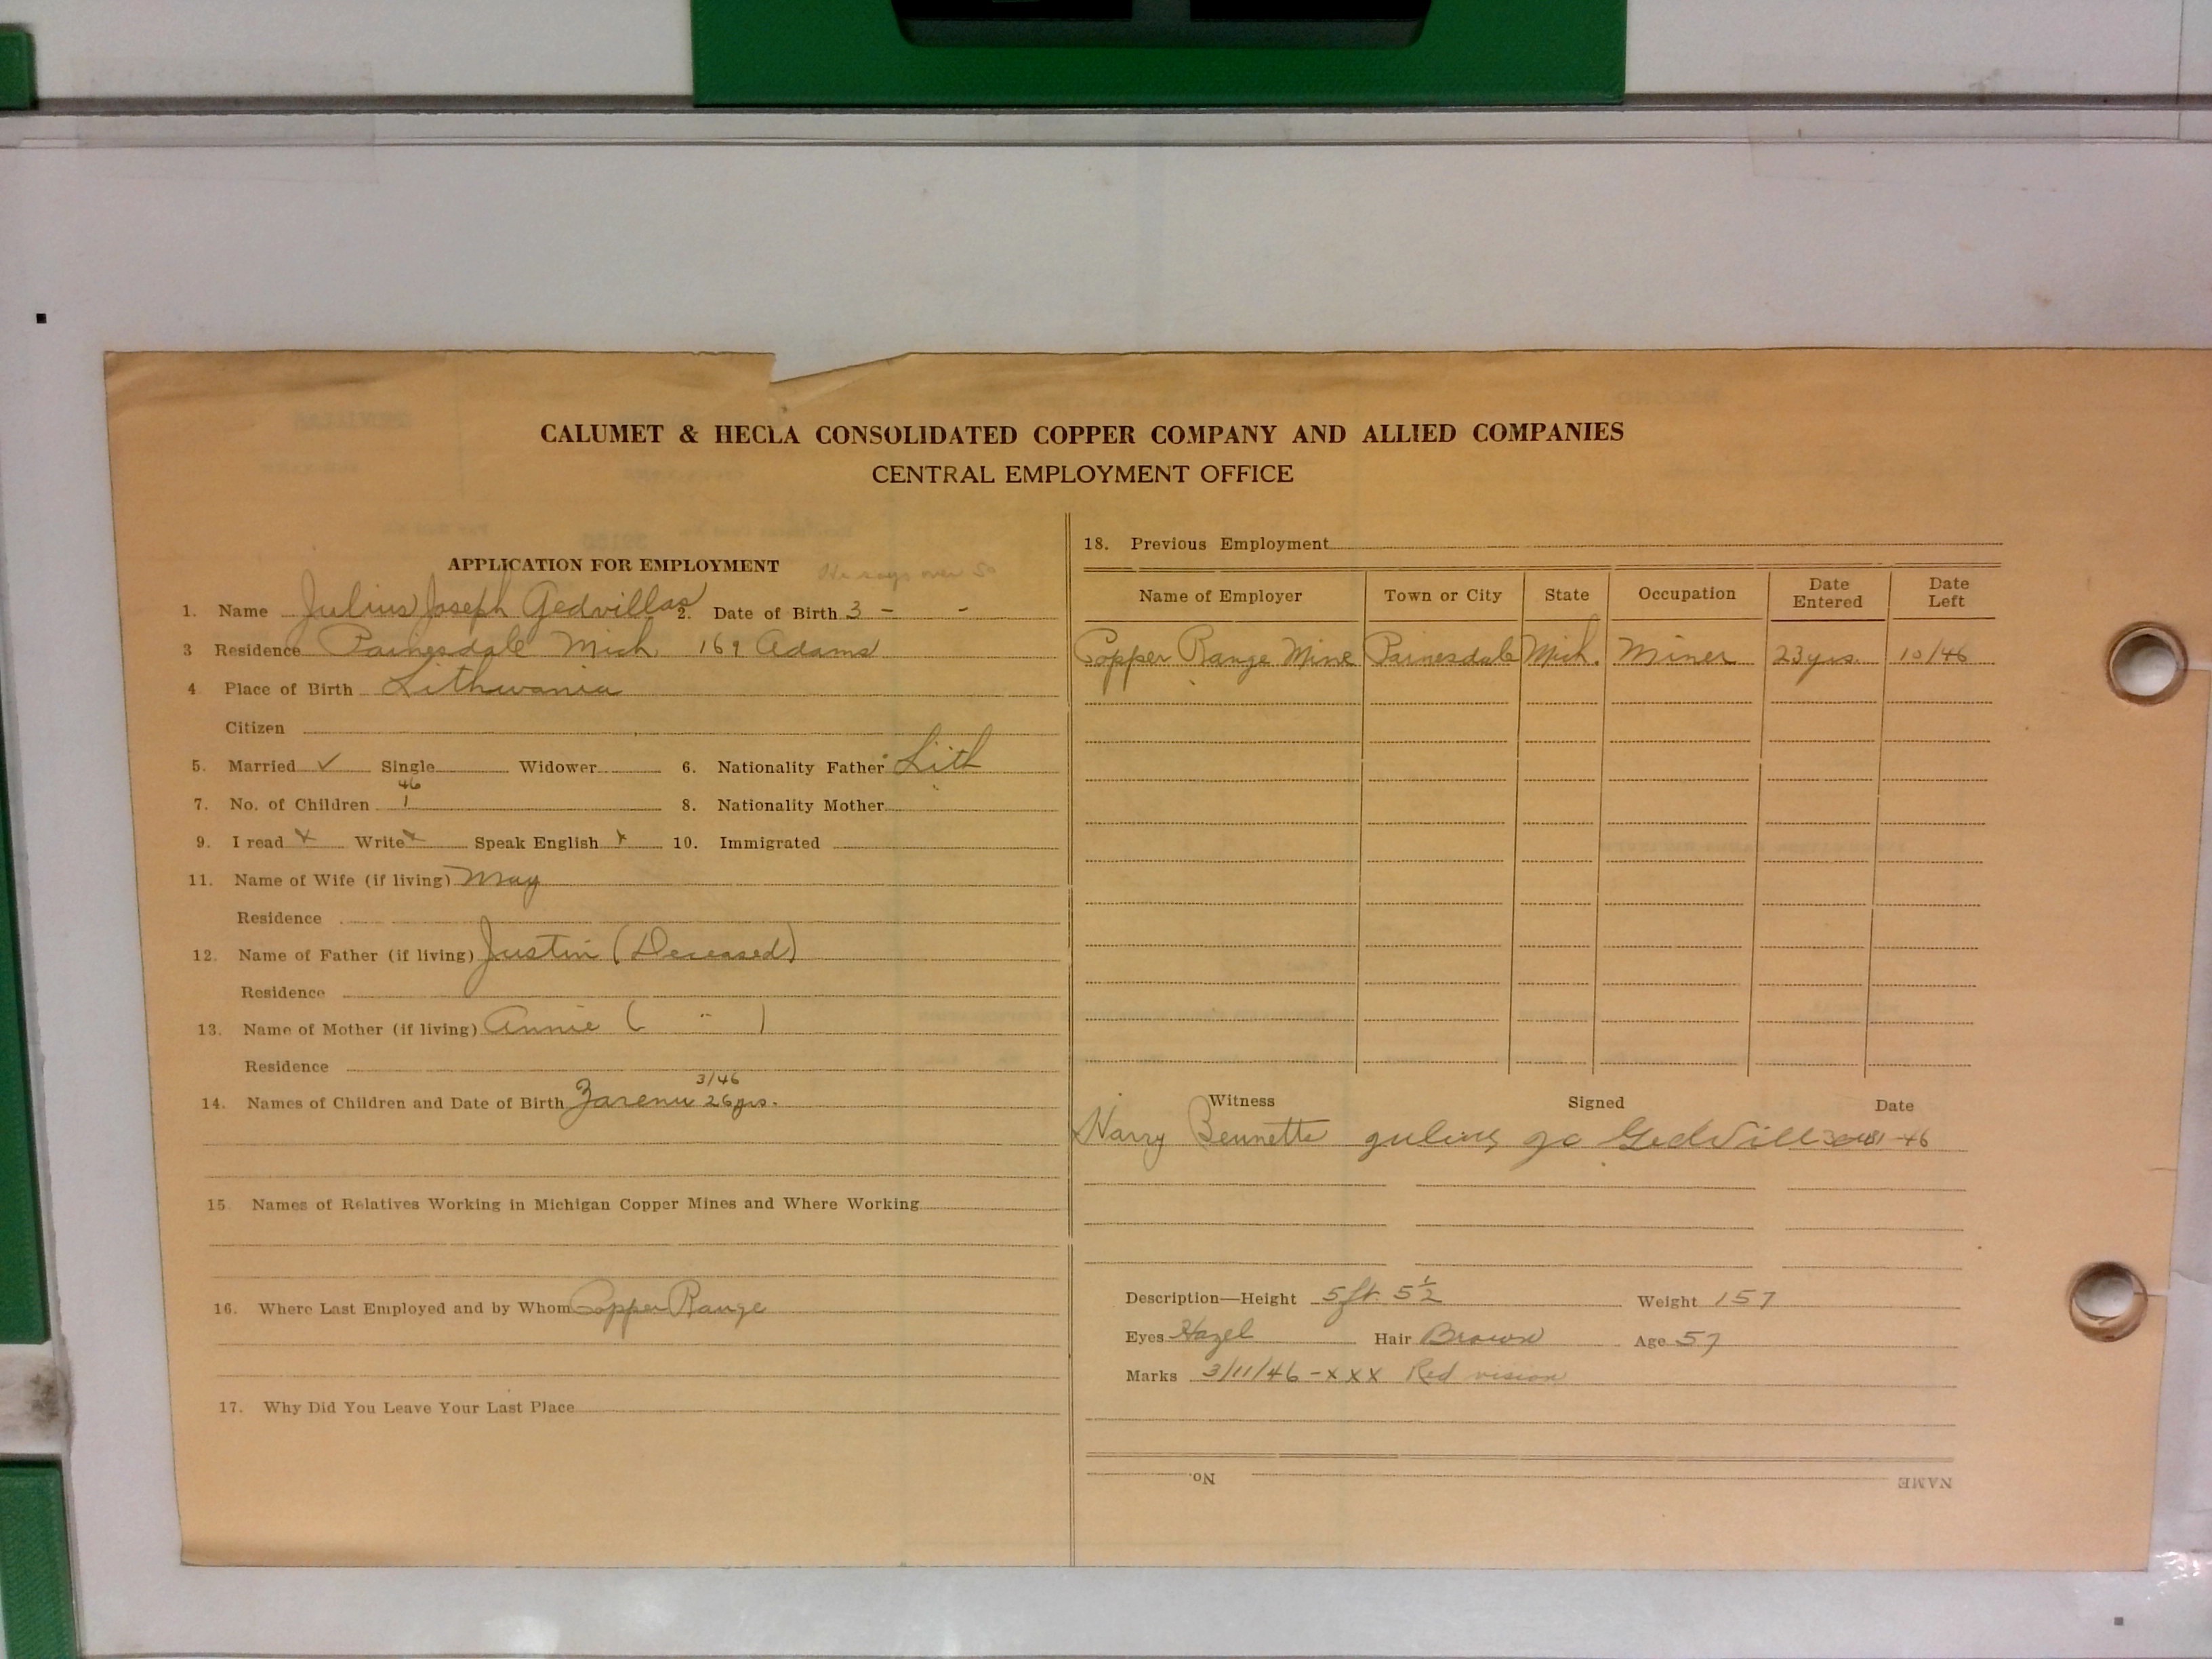 CALUMET & HECLA CONSOLIDATED COPPER COMPANY AND ALLIED COMPANIES
CENTRAL EMPLOYMENT OFFICE
APPLICATION FOR EMPLOYMENT
He says over 50
1. Name Julius Joseph Gedvillas 2. Date of Birth 3 - -
3 Residence Painesdale Mich. 169 Adams
4 Place of Birth Lithuania
Citizen
5. Married ✓ Single Widower 6. Nationality Father Lith
46
7. No. of Children 1 8. Nationality Mother "
9. I read x Write x Speak English x 10. Immigrated
11. Name of Wife (if living) May
Residence
12. Name of Father (if living) Justin (Deceased)
Residence
13. Name of Mother (if living) Annie ( " )
Residence
3/46
14. Names of Children and Date of Birth 26 yrs.
15 Names of Relatives Working in Michigan Copper Mines and Where Working
16. Where Last Employed and by Whom Copper Range
17. Why Did You Leave Your Last Place
18. Previous Employment
Name of Employer Town or City State Occupation Date Entered Date Left
Copper Range Mine Painesdale Mich. Miner 23 yrs. 10/46
Witness Signed Date
Harry Bennette Julius Jo Gedvill -46
Description—Height 5 ft. 5 1/2 Weight 157
Eyes Hazel Hair Brown Age 57
Marks 3/11/46 - x x x Red vision
No. NAME